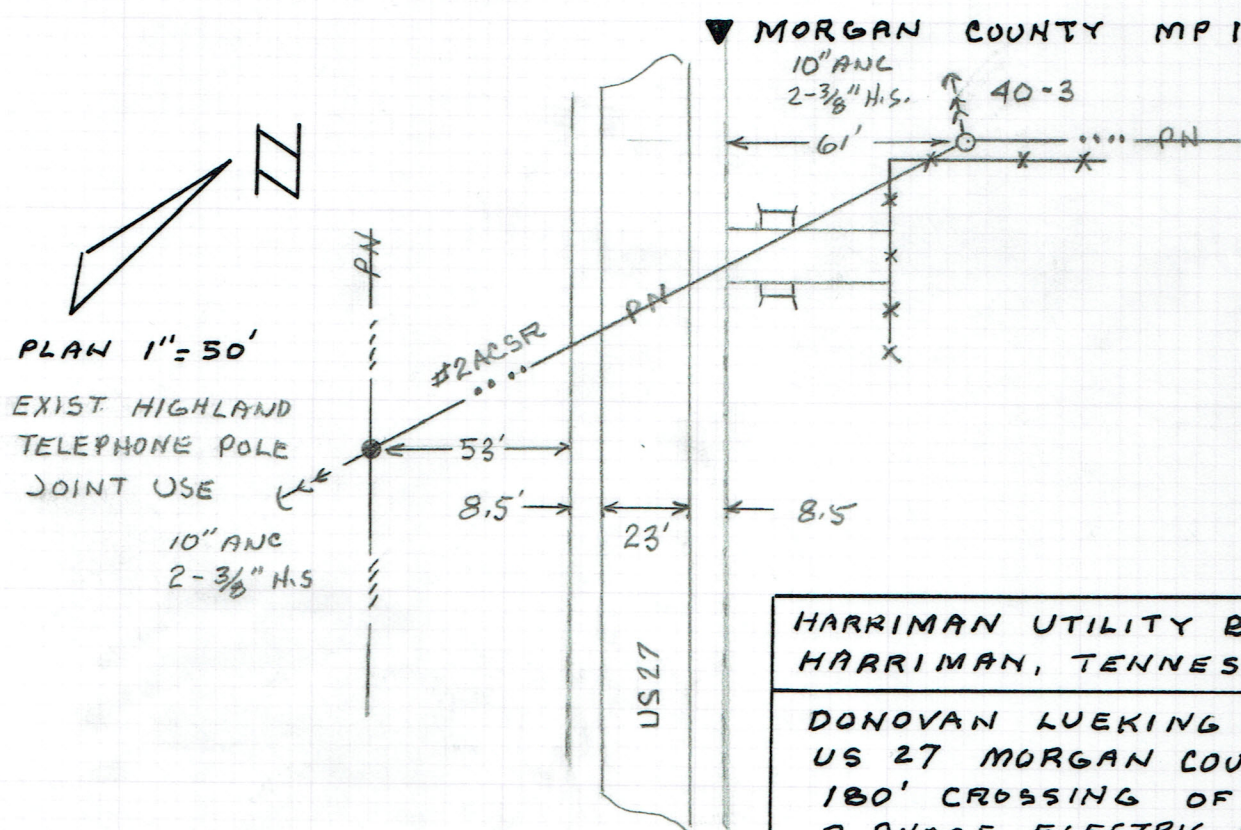 MORGAN COUNTY MP
10" ANC
2-3/8" H.S.
40-3
61'
PN
N
PN
PN
PLAN 1"=50'
#2ACSR
EXIST. HIGHLAND
TELEPHONE POLE
JOINT USE
53'
8.5'
23'
8.5
10" ANC
2-3/8" H.S
US 27
HARRIMAN UTILITY
HARRIMAN, TENNES
DONOVAN LUEKING
US 27 MORGAN COU
180' CROSSING OF